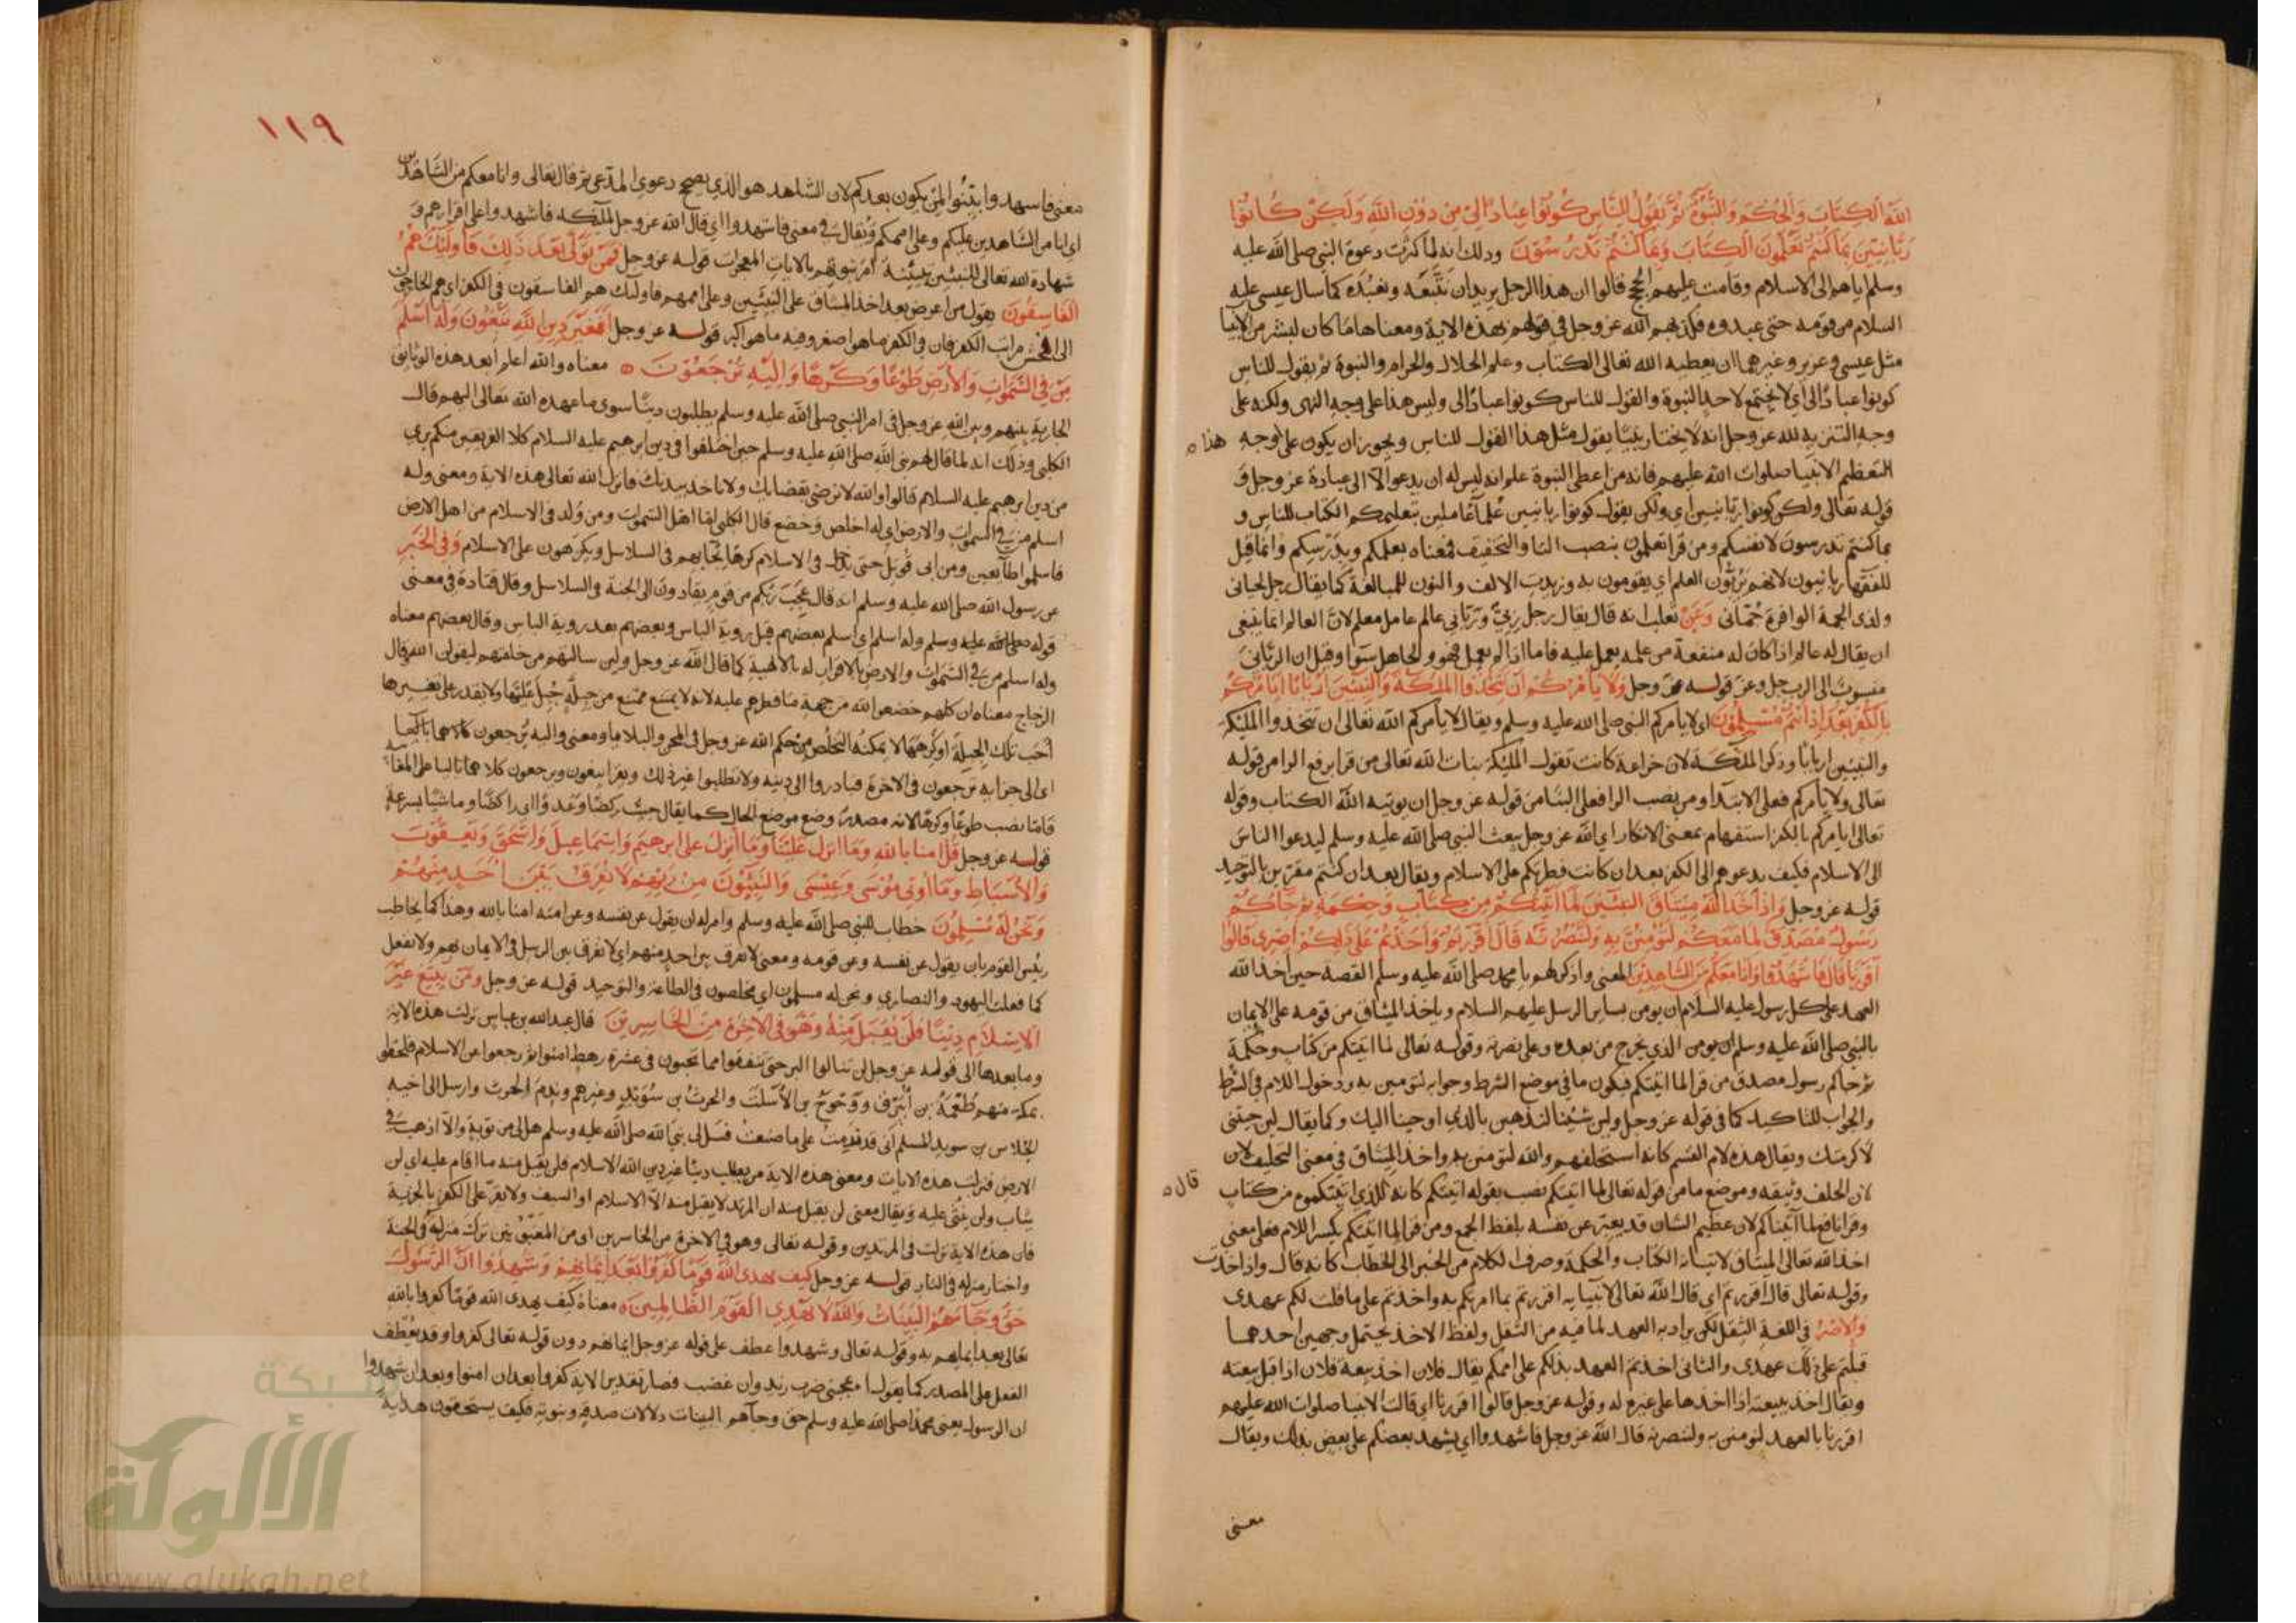 الله الكتاب والحكم والنبوة ثم يقول للناس كونوا عبادا لي من دون الله ولكن كونوا
ربانيين بما كنتم تعلمون الكتاب وبما كنتم تدرسون وذلك انه لما كثرت دعوة النبي صلى الله عليه
وسلم اياهم الى الاسلام وقامت عليهم الحجج قالوا ان هذا الرجل يريد ان نتبعه ونعبده كما سال عيسى عليه
السلام من قومه حتى عبدوه فكذبهم الله عز وجل في قولهم بهذه الاية ومعناها ما كان لبشر من الانبيا
مثل عيسى وعزير وغيرهما ان يعطيه الله تعالى الكتاب وعلم الحلال والحرام والنبوة ثم يقول للناس
كونوا عبادا لي اي لا يجتمع لاحد النبوة والقول للناس كونوا عبادا لي وليس هذا على وجه النهى ولكنه على
وجه التنزيه لله عز وجل انه لا يختار نبيا يقول مثل هذا القول للناس ويجوز ان يكون على وجه هذا
التعظيم الانبيا صلوات الله عليهم فانه من اعطى النبوة علم انه ليس له ان يدعو الا الى عبادة عز وجل و
قوله تعالى ولكن كونوا ربانيين اي ولكن يقول كونوا ربانيين علما عاملين بتعليمكم الكتاب للناس و
بما كنتم تدرسون لانفسكم ومن قرا تعلمون بنصب التا والتخفيف فمعناه بعلمكم وبدرسكم وانما قيل
للفقها ربانيون لانهم يربون العلم اي يقومون به وزيدت الالف والنون للمبالغة كما يقال رجل لحياني
ولذى الجمة الوافرة جماني وعن ثعلب انه قال يقال رجل ربي ورباني عالم عامل معلم لان العالم انما ينبغي
ان يقال له عالم اذا كان له منفعة من علمه بعمل عليه فاما اذا لم يعمل فهو والجاهل سوا وقيل ان الرباني
منسوب الى الرب جل وعز قوله عز وجل ولا يأمركم ان تتخذوا الملئكة والنبيين اربابا ايأمركم
بالكفر بعد اذ انتم مسلمون اى لا يأمركم النبي صلى الله عليه وسلم ويقال لا يأمركم الله تعالى ان تتخذوا المليكة
والنبيين اربابا وذكر الملئكة لان خزاعة كانت تقول المليكة بنات الله تعالى من قرا برفع الرا من قوله
تعالى ولا يأمركم فعلى الابتدا ومن نصب الرا فعلى البنا من قوله عز وجل ان يوتيه الله الكتاب وقوله
تعالى ايامركم بالكفر استفهام بمعنى الانكار اي الله عز وجل بعث النبي صلى الله عليه وسلم ليدعوا الناس
الى الاسلام فكيف يدعوهم الى الكفر بعد ان كانت فطرتكم على الاسلام ويقال بعد ان كنتم مقرين بالتوحيد
قوله عز وجل واذ اخذ الله ميثاق النبيين لما اتيتكم من كتاب وحكمة ثم جاكم
رسول مصدق لما معكم لتومنن به ولتنصرنه قال اقررتم واخذتم على ذلكم اصرى قالوا
اقررنا قال فاشهدوا وانا معكم من الشاهدين المعنى واذكر لهم يا محمد صلى الله عليه وسلم القصة حين اخذ الله
العهد على كل رسول عليه السلام ان يومن بساير الرسل عليهم السلام وياخذ الميثاق من قومه على الايمان
بالنبي صلى الله عليه وسلم ان يومن الذي يخرج من بعده وعلى نصرته وقوله تعالى لما اتيتكم من كتاب وحكمة
ثم جاكم رسول مصدق من قرا لما اتيتكم فيكون ما في موضع الشرط وجوابه لتومنن به ودخول اللام في الشرط
والجواب للتاكيد كما في قوله عز وجل ولين شئنا لنذهبن بالذي اوحينا اليك وكما يقال لين جيتني
لاكرمتك ويقال هذه لام القسم كانه استحلفهم والله لتومنن به واخذ الميثاق في معنى التحليف لان
لان الحلف وثيقة وموضع ما من قوله تعالى لما اتيتكم نصب بقوله اتيتكم كانه للذي اتيتكموه من كتاب قال
وقرا نافع لما آتيناكم لان عظيم الشان قد يعبر عن نفسه بلفظ الجمع ومن قرا لما اتيتكم بكسر اللام فعلى معنى
اخذ الله تعالى الميثاق لاتيانه الكتاب والحكمة وصرف الكلام من الخبر الى الخطاب كانه قال واذ اخذت
وقوله تعالى قال اقررتم اي قال الله تعالى لانبيايه اقررتم بما امرتكم به واخذتم على ما قلت لكم عهدى
والاصر في اللغة الثقل لكن يراد به العهد لما فيه من الثقل ولفظ الاخذ يحتمل وجهين احدهما
قبلتم على ذلك عهدى والثاني اخذتم العهد بذلكم على اممكم يقال فلان اخذ بيعة فلان اذا قبل بيعته
ويقال اخذ ببيعته اذا اخذها على غيره له وقوله عز وجل قالوا اقررنا اي قالت الانبيا صلوات الله عليهم
اقررنا بالعهد لنومنن به ولننصرنه قال الله عز وجل فاشهدوا اي يشهد بعضكم على بعض بذلك ويقال
معنى
١١٩
معنى فاشهدوا بينوا لمن يكون بعدكم لان الشاهد هو الذي يصحح دعوي المدعي ثم قال تعالى وانا معكم من الشاهدين
اي انا من الشاهدين عليكم وعلى اممكم ويقال في معنى فاشهدوا اي قال الله عز وجل للملائكة فاشهدوا على اقرارهم و
شهادة الله تعالى للنبيين تبيينه امر نبوتهم بالايات المعجزات قوله عز وجل فمن تولى بعد ذلك فاوليك هم
الفاسقون يقول من اعرض بعد اخذ الميثاق على النبيين وعلى اممهم فاوليك هم الفاسقون في الكفر اي هم الخارجون
الى افحش مراتب الكفر فان في الكفر ما هو اصغر وفيه ما هو اكبر قوله عز وجل افغير دين الله يبغون وله اسلم
من في السموات والارض طوعا وكرها واليه ترجعون معناه والله اعلم ابعد هذه الوثايق
الجارية بينهم وبين الله عز وجل في امر النبي صلى الله عليه وسلم يطلبون دينا سوى ما عهده الله تعالى اليهم قال
الكلبي وذلك انه لما قال لهم نبي الله صلى الله عليه وسلم حين اختلفوا في دين ابرهيم عليه السلام كلا الفريقين منكم بري
من دين ابرهيم عليه السلام قالوا والله لا نرضى بقضايك ولا ناخذ بدينك فانزل الله تعالى هذه الاية ومعنى وله
اسلم من في السموات والارض اي له اخلص وخضع قال الكلبي اما اهل السموات ومن ولد في الاسلام من اهل الارض
فاسلموا طايعين ومن ابى قوتل حتى دخل في الاسلام كرها يجا بهم في السلاسل ويكرهون على الاسلام وفي الخبر
عن رسول الله صلى الله عليه وسلم انه قال عجب ربكم من قوم يقادون الى الجنة في السلاسل وقال قتادة في معنى
قوله صلى الله عليه وسلم وله اسلم اي اسلم بعضهم قبل روية الباس وبعضهم بعد روية الباس وقال بعضهم معناه
وله اسلم من في السموات والارض بالاقرار له بالالهية كما قال الله عز وجل ولين سالتهم من خلقهم ليقولن الله وقال
الزجاج معناه ان كلهم خضعوا لله من جهة ما فطرهم عليه لانه لا يمتنع ممتنع من جبلة جبل عليها ولا يقدر على تغييرها
احب تلك الجبلة او كرهها لا يمكنه التخلص من حكم الله عز وجل في المحن والبلايا ومعنى واليه ترجعون
اى الى جزايه ترجعون في الاخرة فبادروا الى دينه ولا تطلبوا غير ذلك ويقرا يبغون ويرجعون كلاهما باليا على المغايبة
فاما نصب طوعا وكرها لانه مصدر وضع موضع الحال كما يقال جيت ركضا وعدوا اي راكضا وماشيا بسرعة
قوله عز وجل قل امنا بالله وما انزل علينا وما انزل على ابرهيم واسماعيل واسحق ويعقوب
والاسباط وما اوتي موسى وعيسى والنبيون من ربهم لا نفرق بين احد منهم
ونحن له مسلمون خطاب للنبي صلى الله عليه وسلم وامر له ان يقول عن نفسه وعن امته امنا بالله وهذا كما يخاطب
رييس القوم بان يقول عن نفسه وعن قومه ومعنى لا نفرق بين احد منهم اي لا نفرق بين الرسل في الايمان بهم ولا نفعل
كما فعلت اليهود والنصارى ونحن له مسلمون اي مخلصون في الطاعة والتوحيد قوله عز وجل ومن يبتغ غير
الاسلام دينا فلن يقبل منه وهو في الاخرة من الخاسرين قال عبد الله بن عباس نزلت هذه الاية
وما بعدها الى قوله عز وجل لن تنالوا البر حتى تنفقوا مما تحبون في عشرة رهط امنوا ثم رجعوا عن الاسلام فلحقوا
بمكة منهم طعمة بن ابيرق ووحوح بن الاسلت والحرث بن سويد وغيرهم وندم الحرث وارسل الى اخيه
الجلاس بن سويد المسلم اني قد ندمت على ما صنعت فسل لي نبي الله صلى الله عليه وسلم هل لي من توبة والا اذهب في
الارض فنزلت هذه الايات ومعنى هذه الاية من يطلب دينا غير دين الله الاسلام فلن يقبل منه ما اقام عليه اي لن
يثاب ولن يثنى عليه ويقال معنى لن يقبل منه ان المرتد لا يقبل منه الا الاسلام او السيف ولا يقر على الكفر بالجزية
فان هذه الاية نزلت في المرتدين وقوله تعالى وهو في الاخرة من الخاسرين اى من المغبونين ترك منزله في الجنة
واختار منزله في النار قوله عز وجل كيف يهدى الله قوما كفروا بعد ايمانهم وشهدوا ان الرسول
حق وجاهم البينات والله لا يهدي القوم الظالمين معناه كيف يهدى الله قوما كفروا بالله
تعالى بعد ايمانهم به وقوله تعالى وشهدوا عطف على قوله عز وجل ايمانهم دون قوله تعالى كفروا وقد يعطف
الفعل على المصدر كما يقول اعجبني ضرب زيد وان غضب فصار تقدير الاية كفروا بعد ان امنوا وبعد ان شهدوا
ان الرسول يعني محمدا صلى الله عليه وسلم حق وجاهم البينات دلالات صدقه ونبوته فكيف يستحقون هداية
شبكة
الألوكة
www.alukah.net